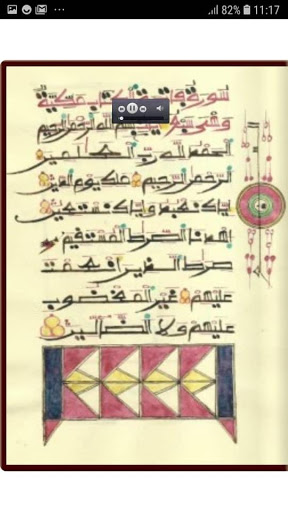 82% 11:17
سورة فاتحة الكتاب مكية
بسم الله الرحمن الرحيم
الحمد لله رب العلمين
الرحمن الرحيم ملك يوم الدين
إياك نعبد وإياك نستعين
اهدنا الصرط المستقيم
صرط الذين أنعمت
عليهم غير المغضوب
عليهم ولا الضالين